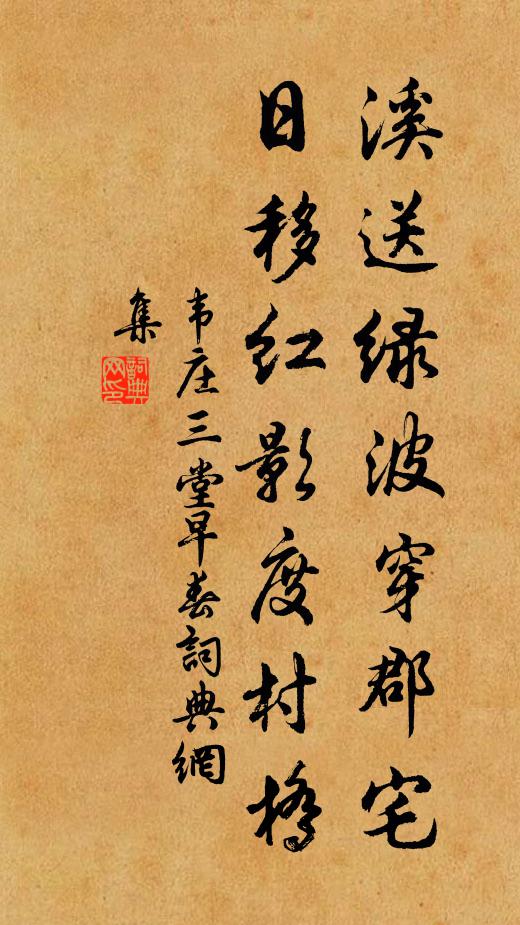 溪送绿波穿郡宅
日移红影度村桥
韦庄三堂早春詞典網
集
詞典网印